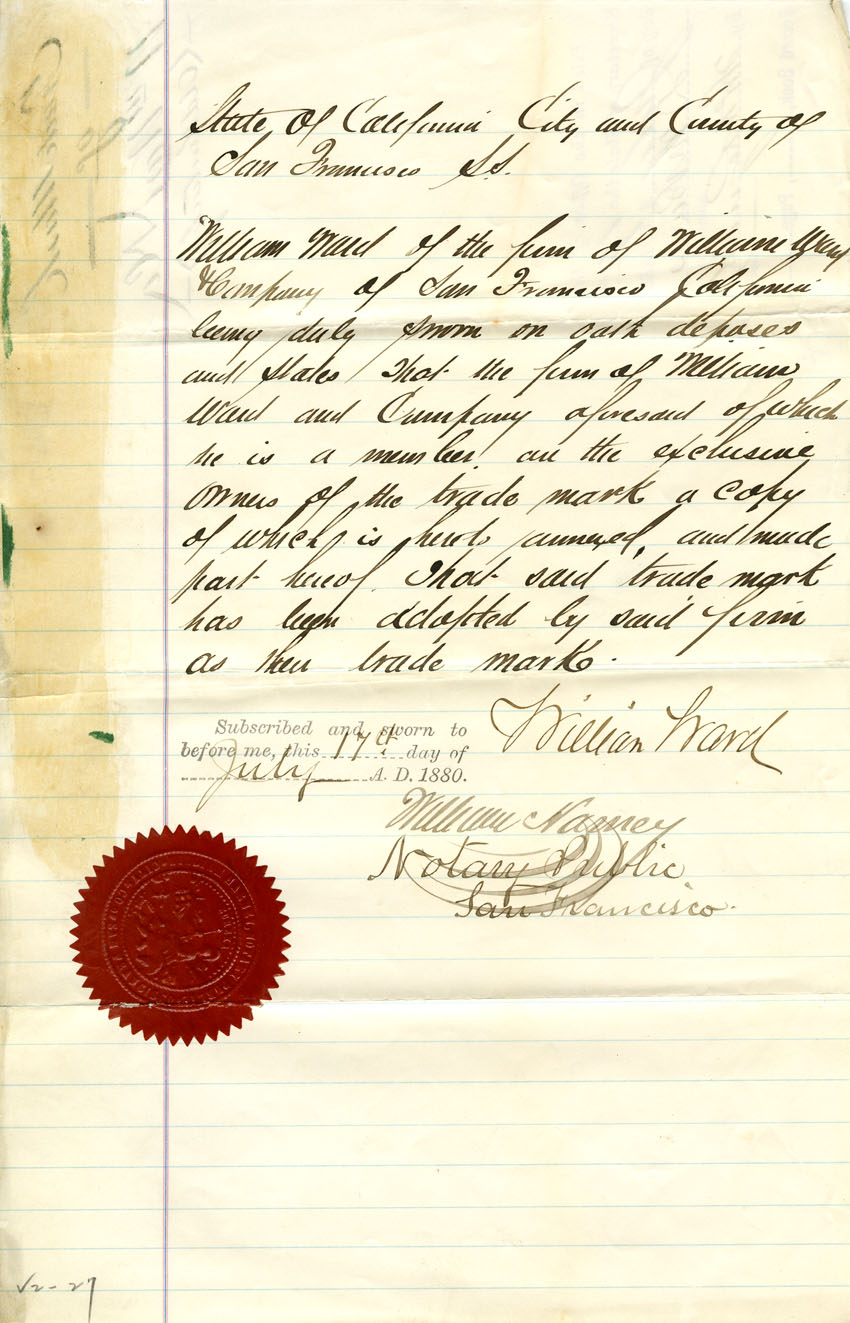 State of California City and County of
San Francisco S.S.
William Ward of the firm of William Ward
& Company of San Francisco California
being duly sworn on oath deposes
and states That the firm of William
Ward and Company aforesaid of which
he is a member are the exclusive
owners of the trade mark a copy
of which is hereto annexed, and made
part hereof. That said trade mark
has been adopted by said firm
as their trade mark.
Subscribed and sworn to
before me, this 17th day of
July A. D. 1880.
William Ward
William
Notary Public
San Francisco.
V2-27